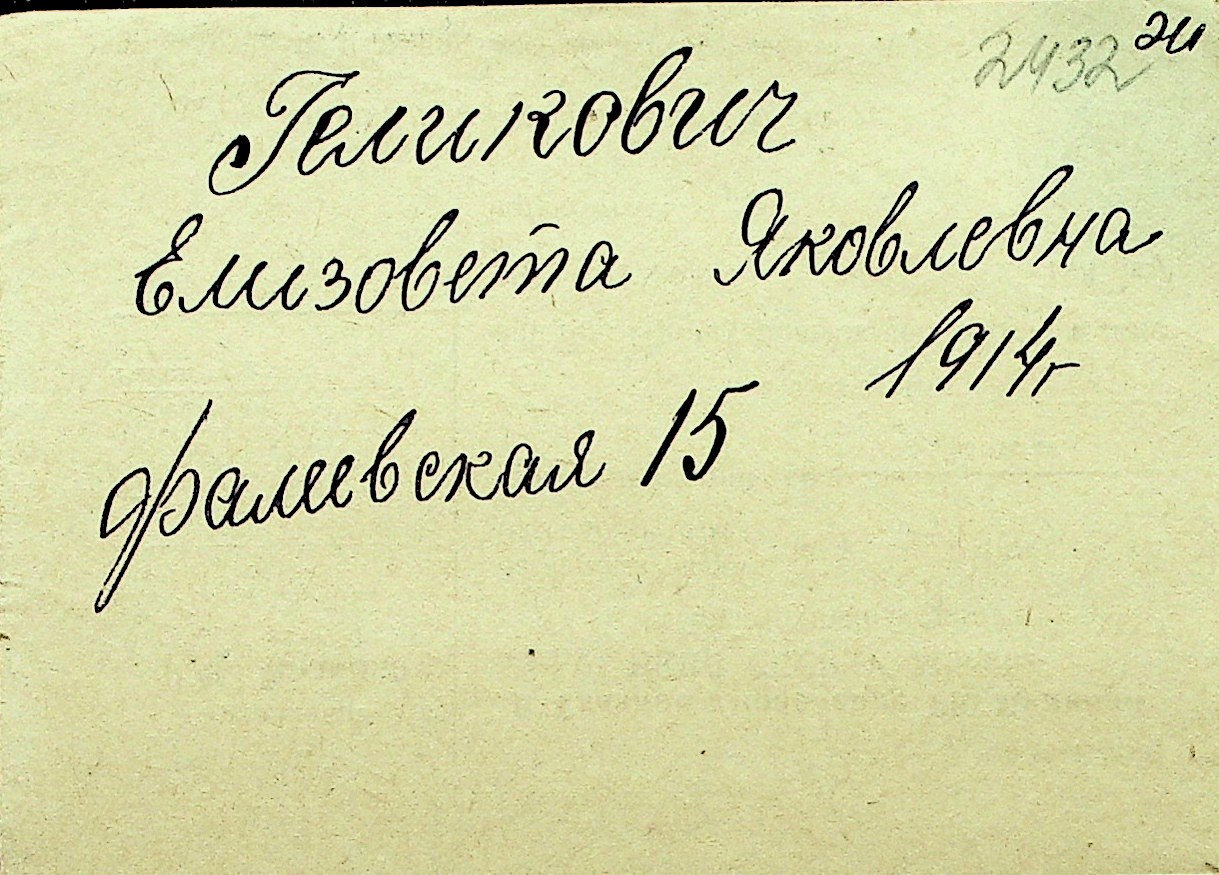 2432 эи
Геликович
Елизовета Яковлевна
1914г
Фалиевская 15